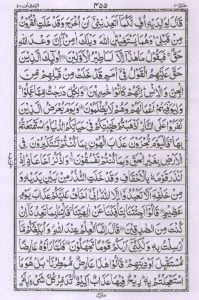 ۴۵۵
قَالَ لِوَالِدَیْهِ اُفٍّ لَّكُمَاۤ اَتَعِدٰنِنِیْۤ اَنْ اُخْرَجَ وَقَدْ خَلَتِ الْقُرُوْنُ
مِنْ قَبْلِیْ وَهُمَا یَسْتَغِیْثٰنِ اللّٰهَ وَیْلَكَ اٰمِنْ اِنَّ وَعْدَ اللّٰهِ
حَقٌّ فَیَقُوْلُ مَا هٰذَاۤ اِلَّاۤ اَسَاطِیْرُ الْاَوَّلِیْنَ اُولٰٓئِكَ الَّذِیْنَ
حَقَّ عَلَیْهِمُ الْقَوْلُ فِیْۤ اُمَمٍ قَدْ خَلَتْ مِنْ قَبْلِهِمْ مِّنَ
الْجِنِّ وَالْاِنْسِ اِنَّهُمْ كَانُوْا خٰسِرِیْنَ وَلِكُلٍّ دَرَجٰتٌ مِّمَّا عَمِلُوْا
وَلِیُوَفِّیَهُمْ اَعْمَالَهُمْ وَهُمْ لَا یُظْلَمُوْنَ وَیَوْمَ یُعْرَضُ الَّذِیْنَ
كَفَرُوْا عَلَی النَّارِ اَذْهَبْتُمْ طَیِّبٰتِكُمْ فِیْ حَیَاتِكُمُ الدُّنْیَا وَاسْتَمْتَعْتُمْ
بِهَا فَالْیَوْمَ تُجْزَوْنَ عَذَابَ الْهُوْنِ بِمَا كُنْتُمْ تَسْتَكْبِرُوْنَ فِی
الْاَرْضِ بِغَیْرِ الْحَقِّ وَبِمَا كُنْتُمْ تَفْسُقُوْنَ وَاذْكُرْ اَخَا عَادٍ اِذْ اَنْذَرَ
قَوْمَهٗ بِالْاَحْقَافِ وَقَدْ خَلَتِ النُّذُرُ مِنْ بَیْنِ یَدَیْهِ وَمِنْ خَلْفِهٖۤ
اَلَّا تَعْبُدُوْۤا اِلَّا اللّٰهَ اِنِّیْۤ اَخَافُ عَلَیْكُمْ عَذَابَ یَوْمٍ
عَظِیْمٍ قَالُوْۤا اَجِئْتَنَا لِتَاْفِكَنَا عَنْ اٰلِهَتِنَا فَاْتِنَا بِمَا تَعِدُنَاۤ اِنْ
كُنْتَ مِنَ الصّٰدِقِیْنَ قَالَ اِنَّمَا الْعِلْمُ عِنْدَ اللّٰهِ وَاُبَلِّغُكُمْ مَّاۤ
اُرْسِلْتُ بِهٖ وَلٰكِنِّیْۤ اَرٰىكُمْ قَوْمًا تَجْهَلُوْنَ فَلَمَّا رَاَوْهُ عَارِضًا
مُّسْتَقْبِلَ اَوْدِیَتِهِمْ قَالُوْا هٰذَا عَارِضٌ مُّمْطِرُنَا بَلْ هُوَ مَا
اسْتَعْجَلْتُمْ بِهٖ رِیْحٌ فِیْهَا عَذَابٌ اَلِیْمٌ تُدَمِّرُ كُلَّ شَیْءٍ بِاَمْرِ